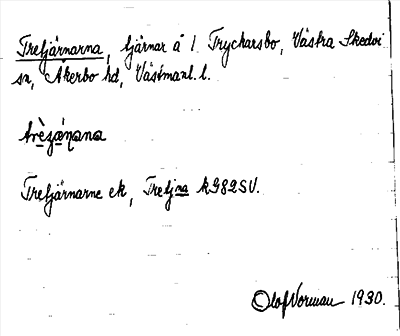 Trefjärnarna, tjärnar å l. Tryckarsbo, Västra Skedvi
sn, Åkerbo hd, Västmanl. l.
Trefjärnarne ek, Trefjna k G82SV.
Olof Norman 1930.